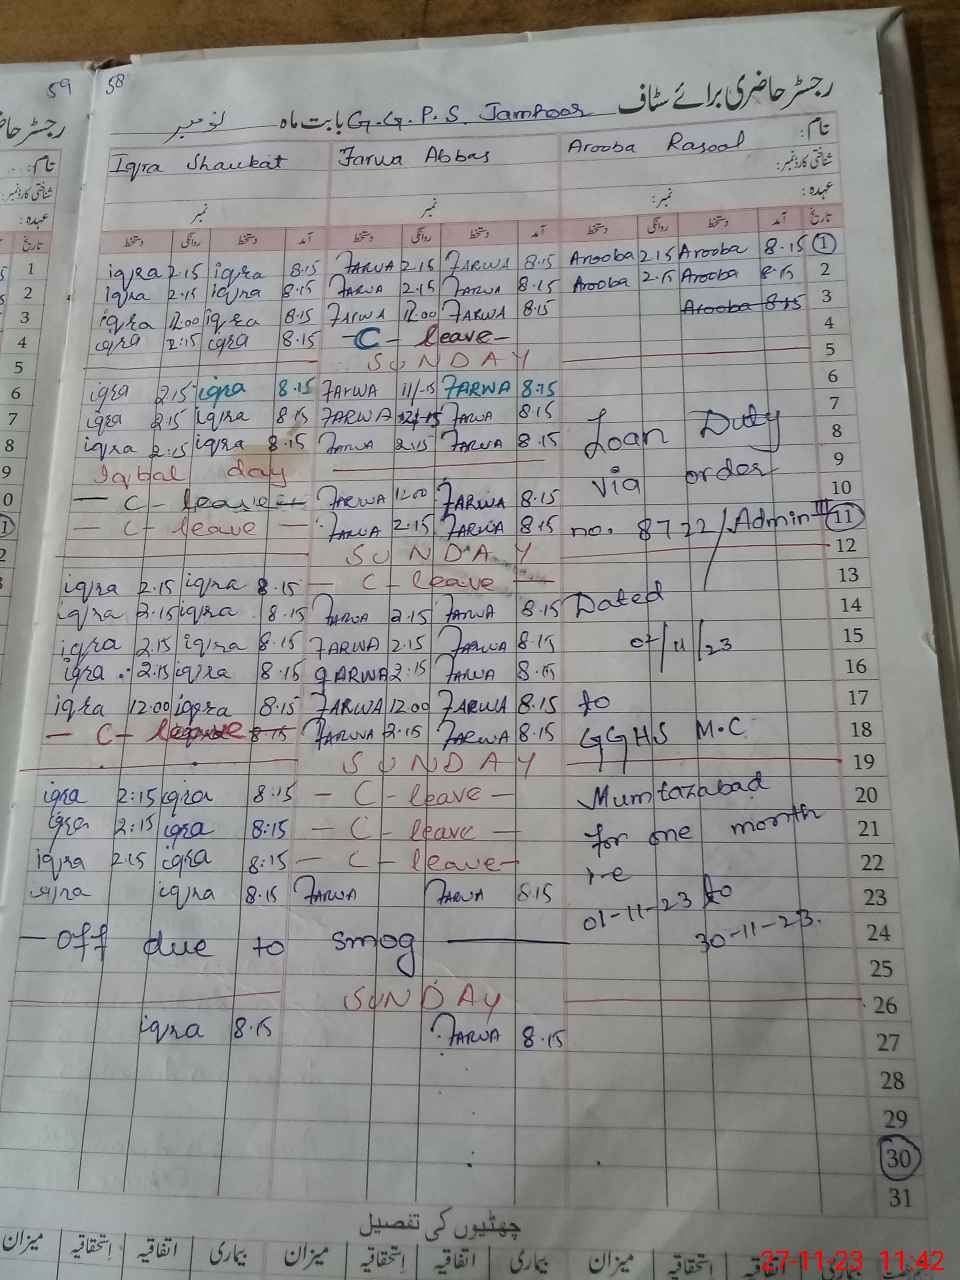 59 58
رجسٹر حاضری برائے سٹاف G.G.P.S. Jampoor بابت ماہ نومبر
نام: Arooba Rasool Farwa Abbas Iqra Shaukat
شناختی کارڈ نمبر:
عہدہ: نمبر: نمبر نمبر
تاریخ آمد دستخط روانگی دستخط آمد دستخط روانگی دستخط آمد دستخط روانگی دستخط
iqra 2.15 iqra 8.15 FARWA 2.15 FARWA 8.15 Arooba 2.15 Arooba 8.15 1
iqra 2.15 iqra 8.15 FARWA 2.15 FARWA 8.15 Arooba 2.15 Arooba 8.15 2
iqra 12.00 iqra 8.15 FARWA 12.00 FARWA 8.15 Arooba 8.15 3
iqra 2:15 iqra 8.15 C - leave - 4
SUNDAY 5
iqra 2.15 iqra 8.15 FARWA 11/-15 FARWA 8.15 6
iqra 2.15 iqra 8.15 FARWA FARWA 8.15 7
iqra 2:15 iqra 8.15 FARWA 2.15 FARWA 8.15 Loan Duty 8
Iqbal day 9
— C - leave — FARWA 12.00 FARWA 8.15 via order 10
— C - leave — FARWA 2.15 FARWA 8.15 no. 8722/Admin III 11
SUNDAY 12
iqra 2.15 iqra 8.15 — C - leave — 13
iqra 2.15 iqra 8.15 FARWA 2.15 FARWA 8.15 Dated 14
iqra 2.15 iqra 8.15 FARWA 2.15 FARWA 8.15 /11/23 15
iqra 2.15 iqra 8.15 FARWA 2.15 FARWA 8.15 16
iqra 12.00 iqra 8.15 FARWA 12.00 FARWA 8.15 to 17
— C - leave 8.15 FARWA 2.15 FARWA 8.15 GGHS M.C 18
SUNDAY 19
iqra 2:15 iqra 8:15 — C - leave — Mumtazabad 20
iqra 2:15 iqra 8:15 — C - leave — for one month 21
iqra 2.15 iqra 8:15 — C - leave — i-e 22
iqra iqra 8.15 FARWA FARWA 8.15 01-11-23 to 23
— off due to smog — 30-11-23. 24
25
SUNDAY 26
iqra 8.15 FARWA 8.15 27
28
29
30
31
چھٹیوں کی تفصیل
اتفاقیہ استحقاقیہ میزان بیماری اتفاقیہ استحقاقیہ میزان بیماری اتفاقیہ استحقاقیہ میزان
27-11-23 11:42